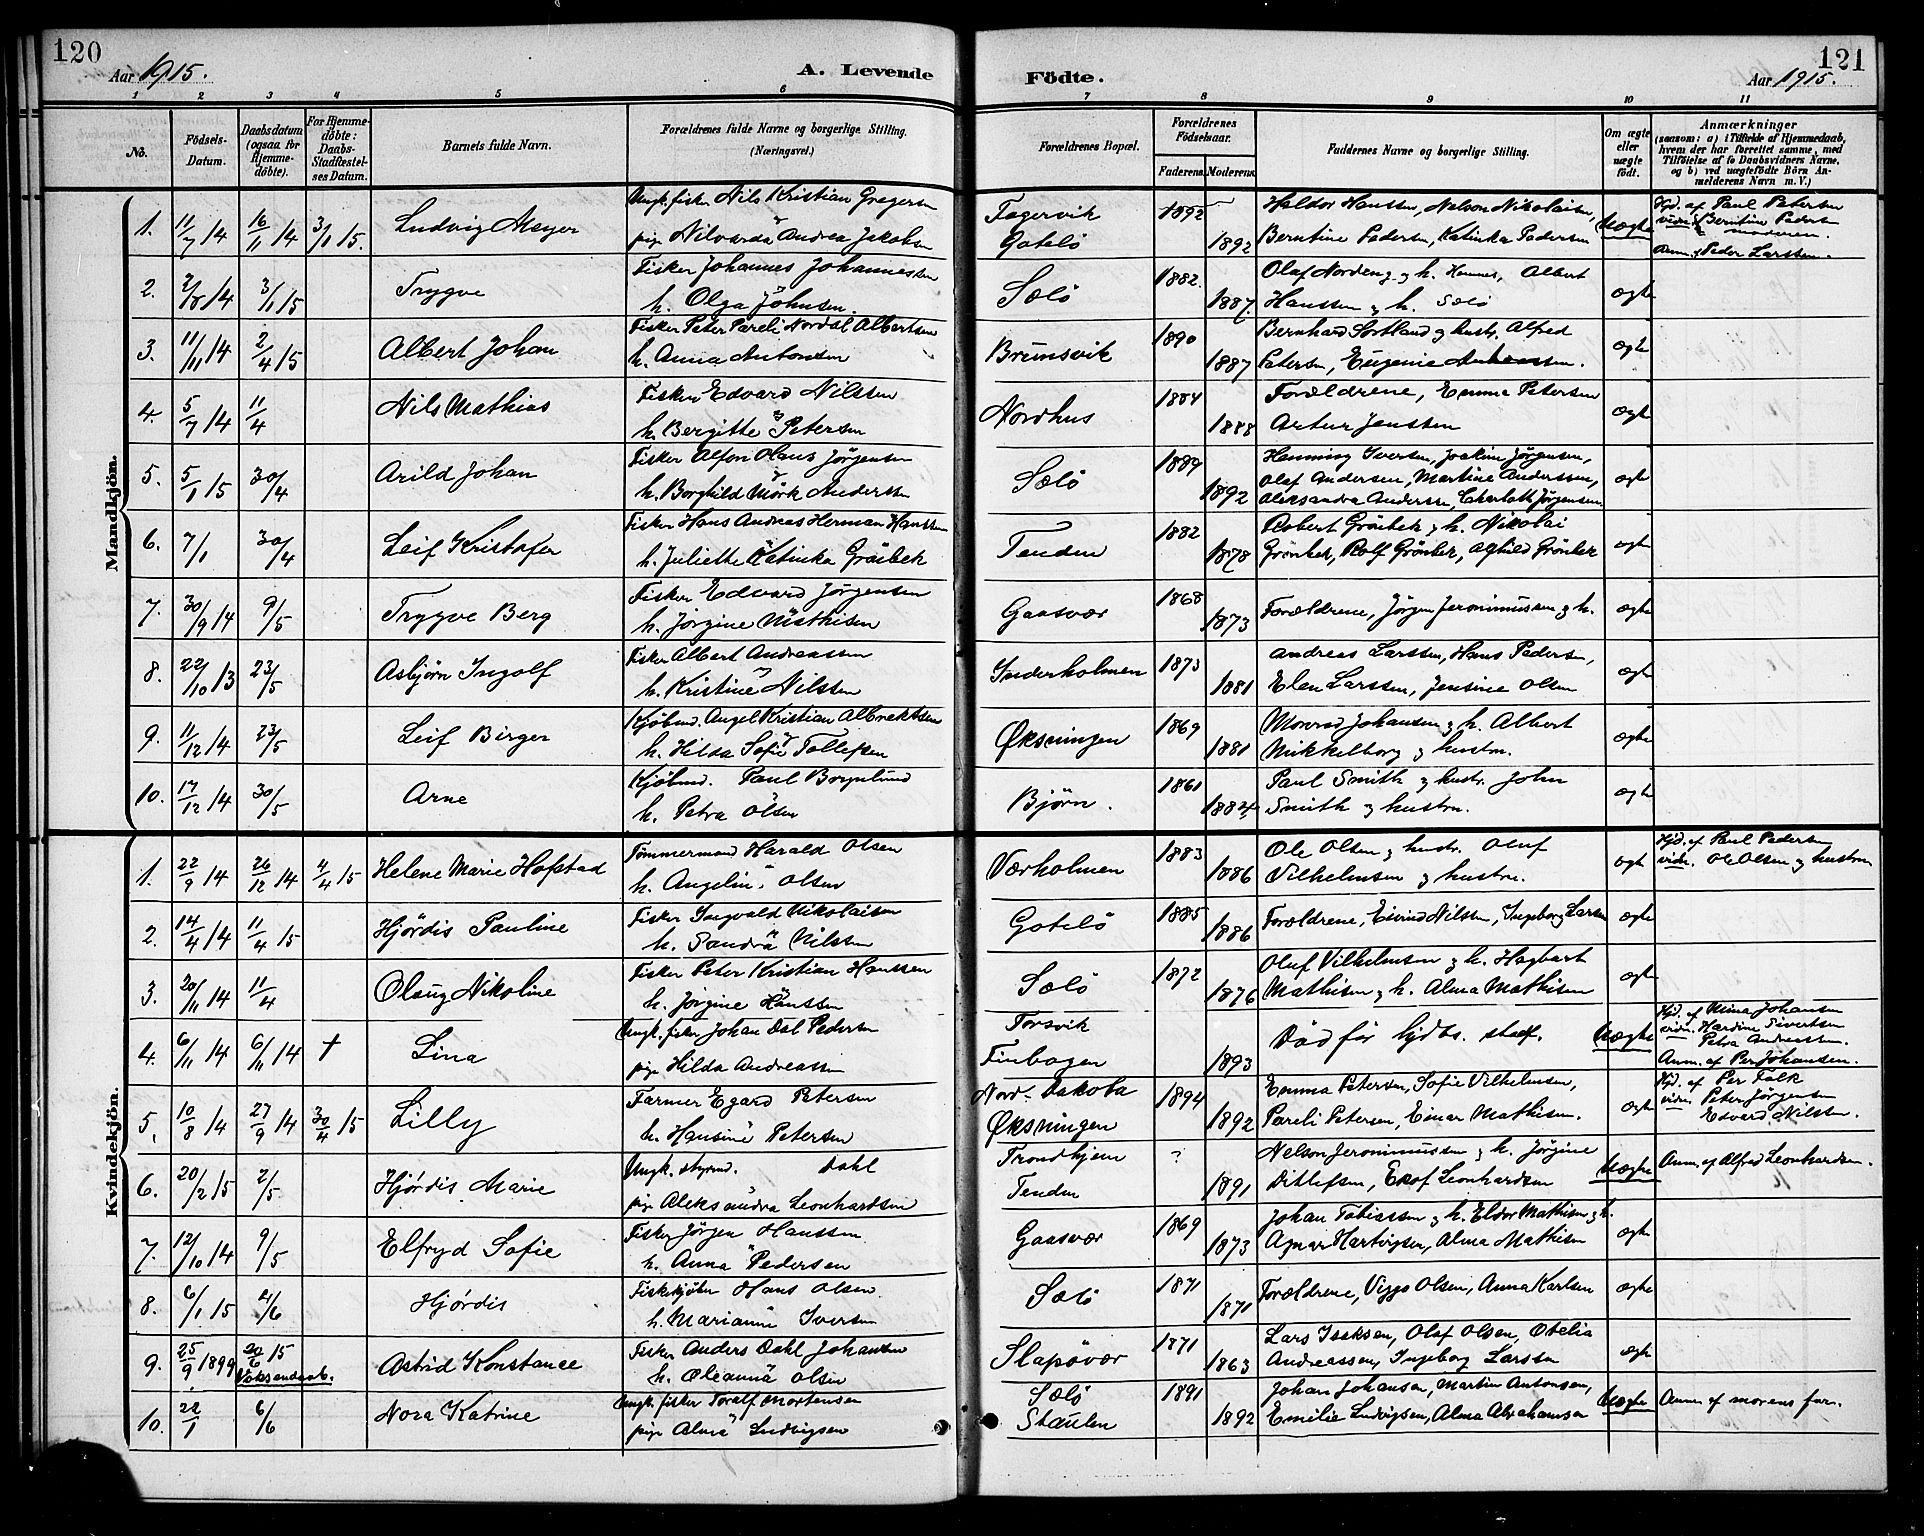 120
Aar 1915.
A. Levende
Födte.
121
Aar 1915.
1 2 3 4 5 6 7 8 9 10 11
No.
Födsels-Datum.
Daabsdatum (ogsaa for Hjemmedöbte).
For Hjemmedöbte: Daabs-Stadfæstelses Datum.
Barnets fulde Navn.
Forældrenes fulde Navne og borgerlige Stilling. (Næringsvei.)
Forældrenes Bopæl.
Forældrenes Födselsaar.
Faderens. Moderens.
Faddernes Navne og borgerlige Stilling.
Om ægte eller uægte födt.
Anmærkninger (saasom: a) i Tilfælde af Hjemmedaab, hvem der har forrettet samme, med Tilföielse af to Daabsvidners Navne, og b) ved uægtefödte Börn Anmelderens Navn m. V.)
Mandkjön.
1. 11/7 14 16/11 14 3/1 15. Ludvig Meyer Ungk. fisker Nils Kristian Gregersen Fagervik 1892 Haldor Hanssen, Nelson Nikolaisen, Uægte Hjd. af Paul Petersen
pige Nilvarda Andrea Jakobsen Gotelö 1892 Berntine Pedersen, Katinka Pedersen vidn. Berntine Pedersen
Anm. af Peder Larssen.
2. 2/8 14 3/1 15 Trygve Fisker Johannes Johannessen Sölö 1882. Olaf Norden og h. Hannes, Albert ægte
h. Olga Johnsen. 1887. Hanssen og h. Sölö
3. 11/11 14 2/4 15 Albert Johan Fisker Peter Pareli Nordal Albertsen Brunsvik 1890 Bernhard Sortland og hustr. Alfred ægte
h. Anna Antonsen 1887 Petersen, Eugenie
4. 5/7 14 11/4 Nils Mathias Fisker Edvard Nilssen Nordhus 1884 Forældrene, Emma Petersen ægte
h. Bergitte Petersen 1888 Artur Jenssen
5. 5/1 15 30/4 Arild Johan Fisker Alfon Olaus Jörgensen Sölö 1889 Henning Iversen, Joakim Jørgensen, ægte
h. Borghild Mörk Andersen 1892 Olaf Andersen, Martine Anderssen,
Aleksandra Andersen, Charlotte Jørgensen
6. 7/1 30/4 Leif Kristofer Fisker Hans Andreas Herman Hanssen Tenden 1882 Robert Grönbek og h. Nikolai ægte
h. Juliette Katinka Grönbek 1878 Grönbek, Rolf Grönbek, Aghild Grönbek
7. 30/9 14 9/5 Trygve Berg Fisker Edvard Jörgensen Gaasvær 1868 Forældrene, Jørgen Jeronimussen og h. ægte
h. Jørgine Mathisen 1873
8. 22/10 13 23/5 Asbjørn Ingolf Fisker Albert Andreassen Inderholmen 1873 Andreas Larssen, Hans Pedersen, ægte
h. Kristine Nilssen 1881 Elen Larssen, Jensine Olsen
9. 11/12 14 23/5 Leif Birger Kjöbmd. Angel Kristian Albrektsen Øksningen 1869 Monrad Johansen og h. Albert ægte
h. Hilda Sofie Tollefsen 1881 Mikkelborg og hustru.
10. 17/12 14 30/5 Arne Kjöbmd. Paul Borgelund Bjørn. 1861 Paul Smith og hustr. John ægte
h. Petra Olsen 1882 Smith og hustru.
Kvindekjön.
1. 22/9 14 26/12 14 4/4 15 Helene Marie Hofstad Tömmermand Harald Olsen Værholmen 1883 Ole Olsen og hustr. Oluf ægte Hjd. af Paul Pedersen
h. Angelin Olsen 1886 Vilhelmsen og hustru. vidn. Ole Olsen og hustru
2. 14/4 14 11/4 15 Hjördis Pauline Fisker Ingvald Nikolaisen Gotelö 1885 Forældrene, Eivind Nilssen, Ingeborg Larsen ægte
h. Sandra Nilssen 1886
3. 20/11 14 11/4 Olaug Nikoline Fisker Peter Kristian Hanssen Sölö 1872 Oluf Vilhelmsen og h. Hagbart ægte
h. Jørgine Hanssen 1876 Mathisen og h. Alma Mathisen
4. 6/11 14 6/11 14 † Lina Ungk. fisker Johan Dal Pedersen Torsvik Död før hjdbs. stadf. Uægte Hjd. af Mina Johansen
pige Hilda Andreassen Finbogen 1893 vidn. Hardine Sivertsen
Petra Andreassen.
Anm. af Per Johansen.
5. 10/8 14 27/9 14 30/4 15 Lilly Farmer Egard Petersen Nord-Dakota 1894 Emma Petersen, Sofie Vilhelmsen, ægte Hjd. af Per Falk
h. Hansine Petersen Øksningen 1892 Pareli Petersen, Einar Mathisen. vidn. Peter Jørgensen
Edvard Nilssen.
6. 20/2 15 2/5 Hjördis Marie Ungk. styrmd. Dahl Trondhjem ? Nelson Jeronimussen og h. Jørgine Uægte Anm. af Alfred Leonhardsen.
pige Aleksandra Leonhardsen Tenden 1891 Ditlefsen, Leonhardsen
7. 12/10 14 9/5 Elfryd Sofie Fisker Jørgen Hanssen Gaasvær 1869 Johan Tobiassen og h. Eldor Mathisen og h. ægte
h. Anna Pedersen 1873 Agnar Hartvigsen, Alma Mathisen
8. 6/1 15 4/6 Hjørdis Fiskekjöber Hans Olsen. Sölö 1871 Forældrene, Viggo Olsen, Anna Karlsen ægte
h. Marianne Iversen 1871
9. 25/9 1899 20/6 15 Voksendaab. Astrid Konstance Fisker Anders Dahl Johansen Slapövær 1871 Lars Isaksen, Olaf Olsen, Otelia ægte
h. Oleanna Olsen 1863 Andreassen, Ingeborg Larssen
10. 22/1 6/6 Nora Katrine Ungk. fisker Toralf Mortensen Sölö 1891 Johan Johansen, Martin Antonsen, Uægte Anm. af morens far.
pige Alma Ludvigsen Staulen 1892 Emilie Ludvigsen, Alma Abrahamsen